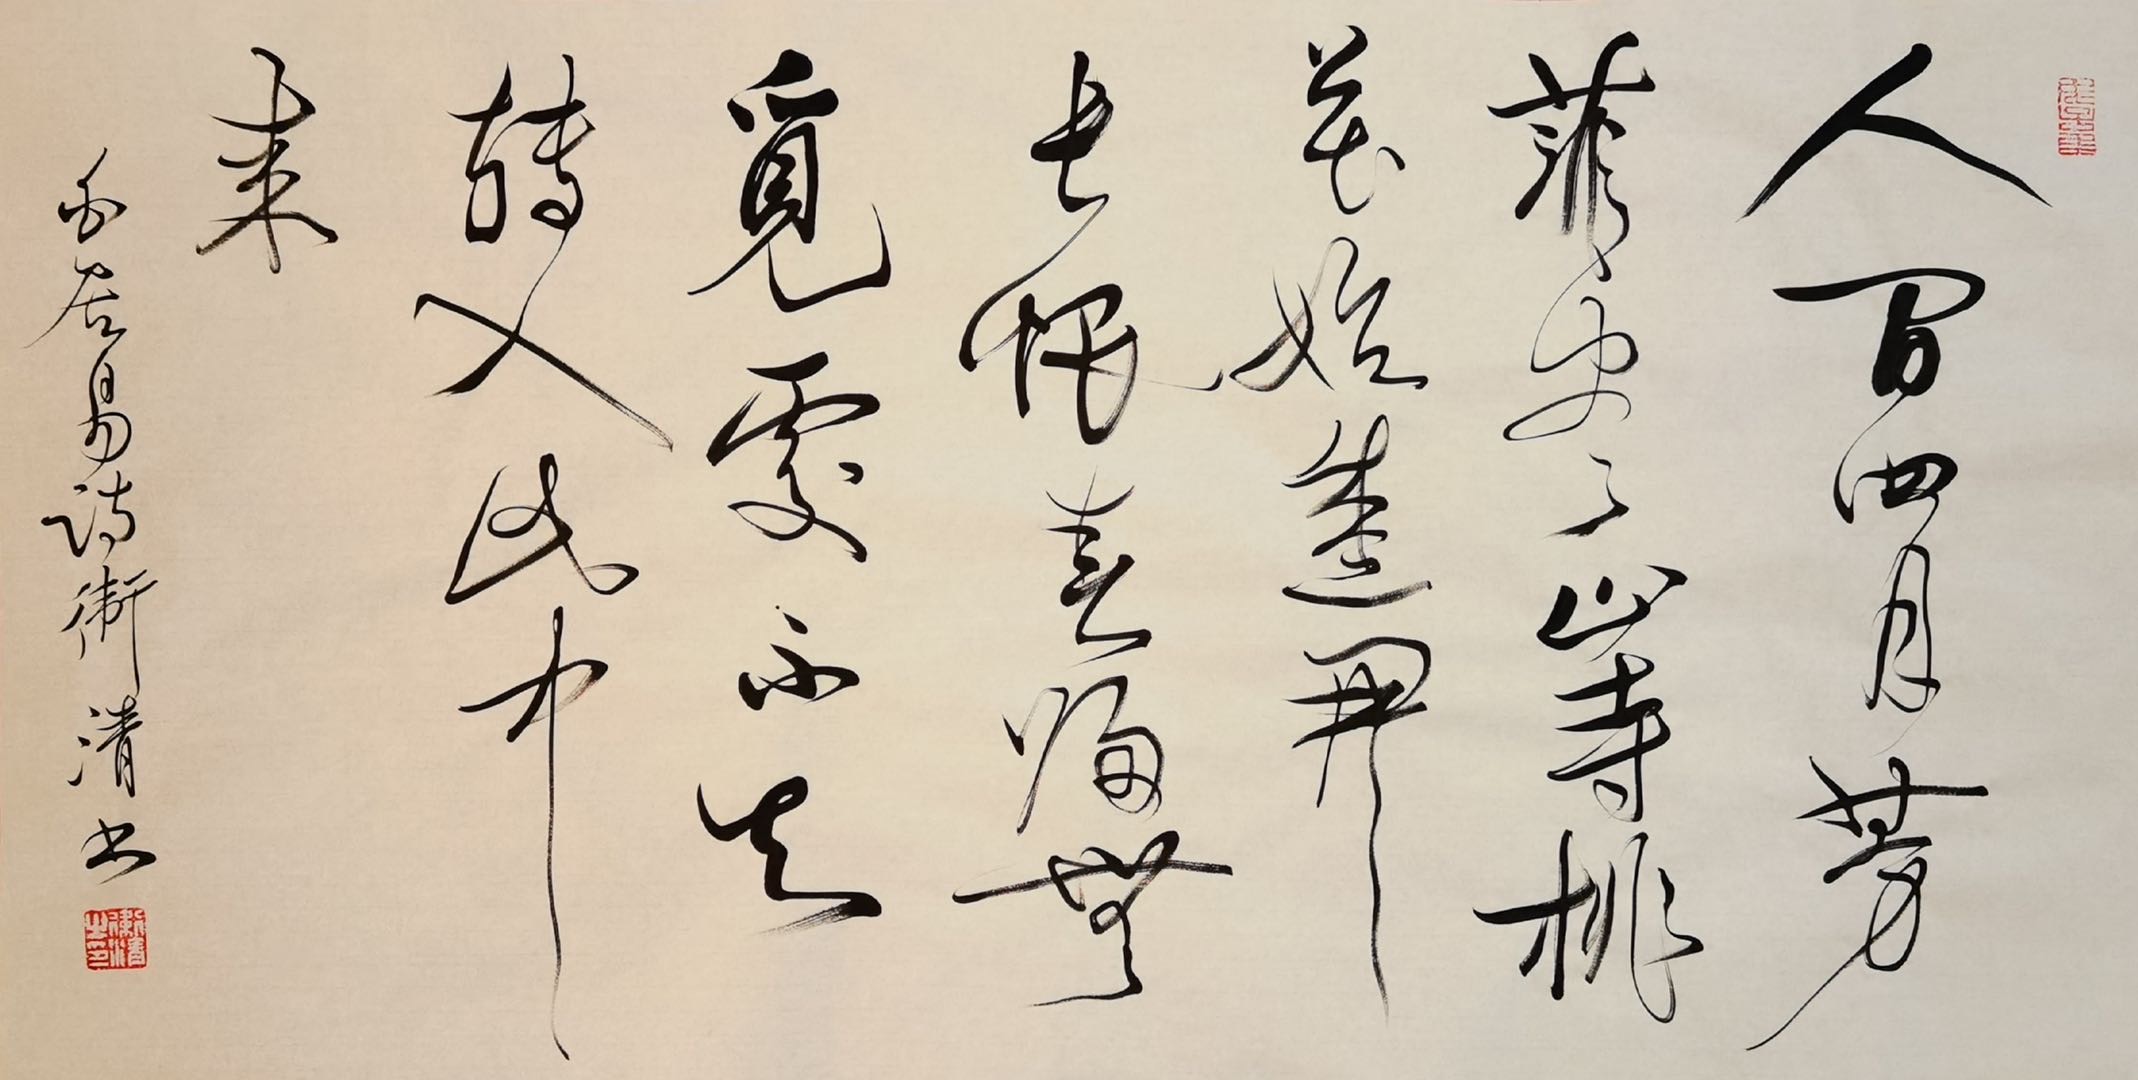 人間四月芳
菲盡山寺桃
花始盛開
長恨春歸無
覓處不知
轉入此中
來
白居易詩衛清书
衛清之印